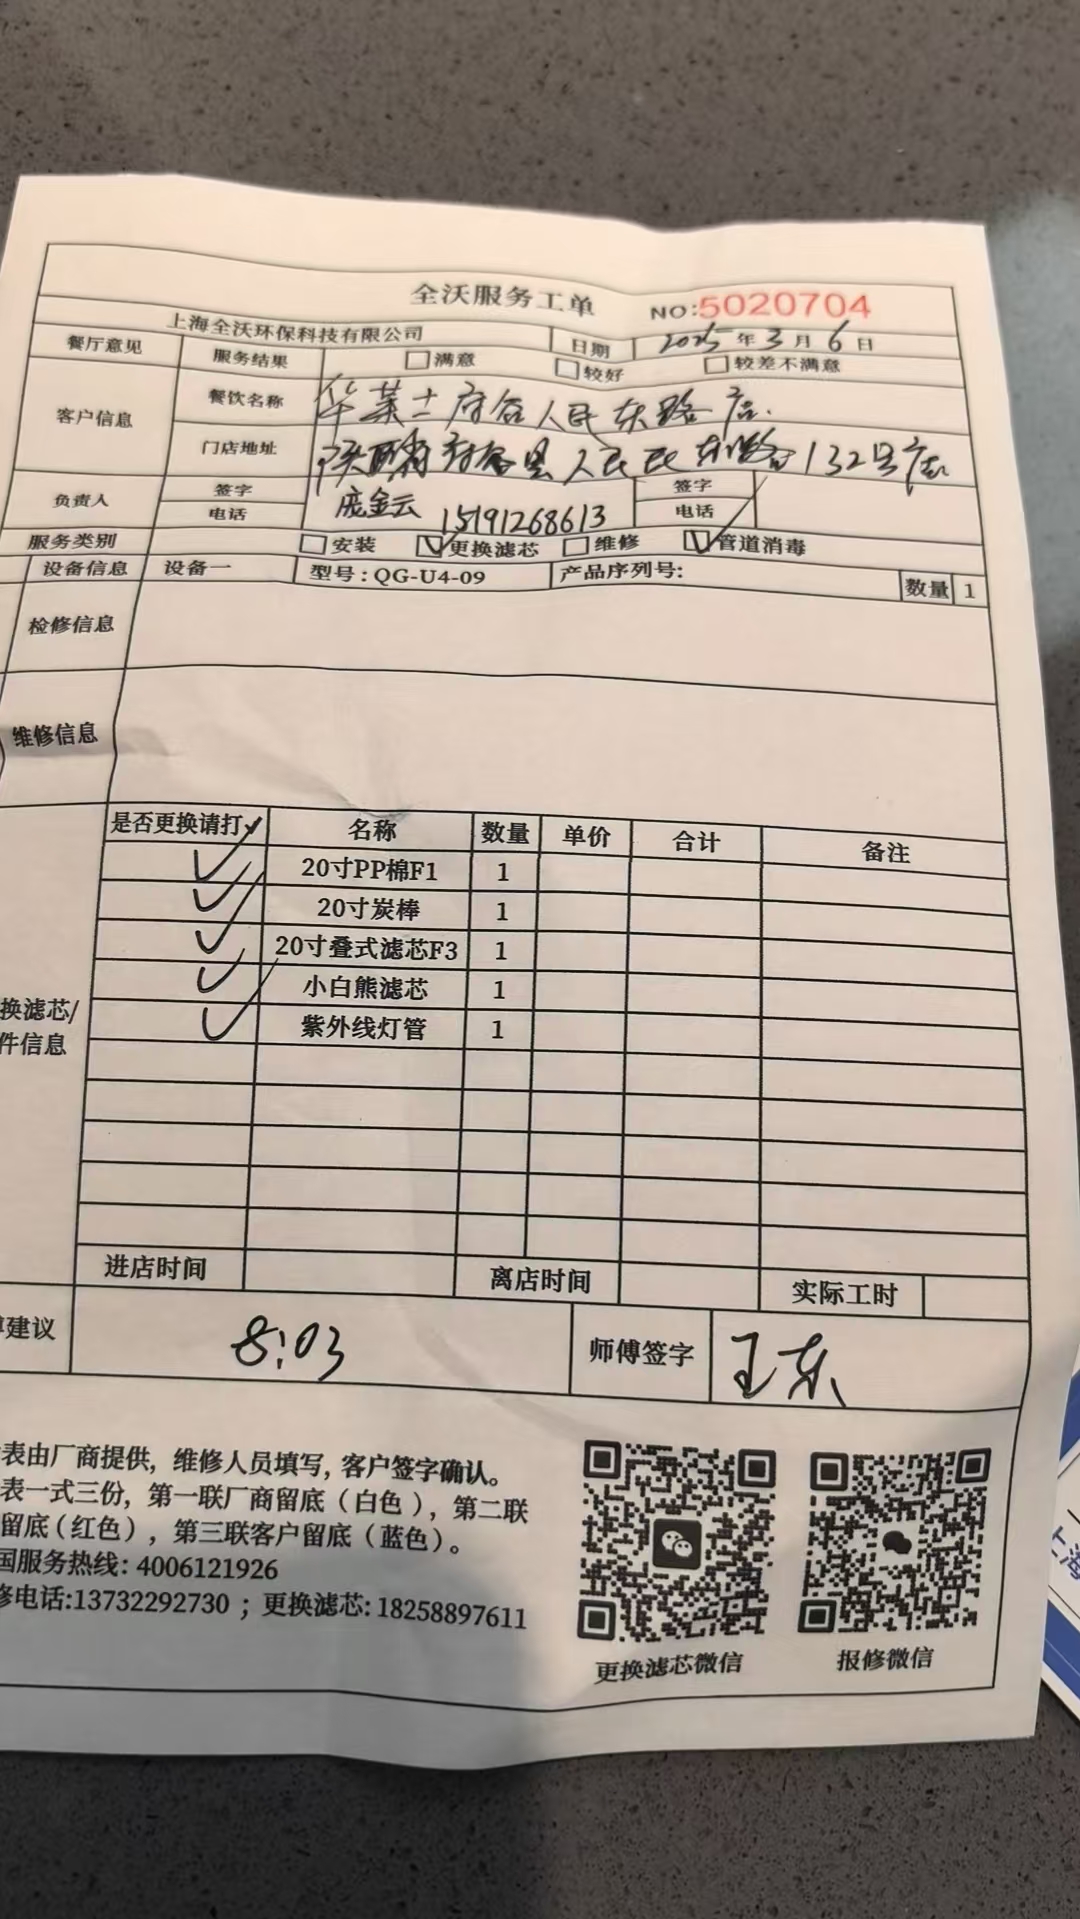 全沃服务工单 NO:5020704
上海全沃环保科技有限公司 日期 2025年3月6日
餐厅意见 服务结果 满意 较好 较差不满意
客户信息 餐饮名称 华莱士府谷人民东路店.
门店地址 陕西省府谷县人民东路132号店
负责人 签字 庞金云 签字
电话 15191268613 电话
服务类别 安装 更换滤芯 维修 管道消毒
设备信息 设备一 型号:QG-U4-09 产品序列号: 数量 1
检修信息
维修信息
是否更换请打✓ 名称 数量 单价 合计 备注
✓ 20寸PP棉F1 1
✓ 20寸炭棒 1
✓ 20寸叠式滤芯F3 1
✓ 小白熊滤芯 1
✓ 紫外线灯管 1
换滤芯/
件信息
进店时间 离店时间 实际工时
建议 8:03 师傅签字 王东
表由厂商提供，维修人员填写，客户签字确认。
表一式三份，第一联厂商留底（白色），第二联
留底（红色），第三联客户留底（蓝色）。
国服务热线: 4006121926
修电话:13732292730 ；更换滤芯: 18258897611
更换滤芯微信 报修微信
上海